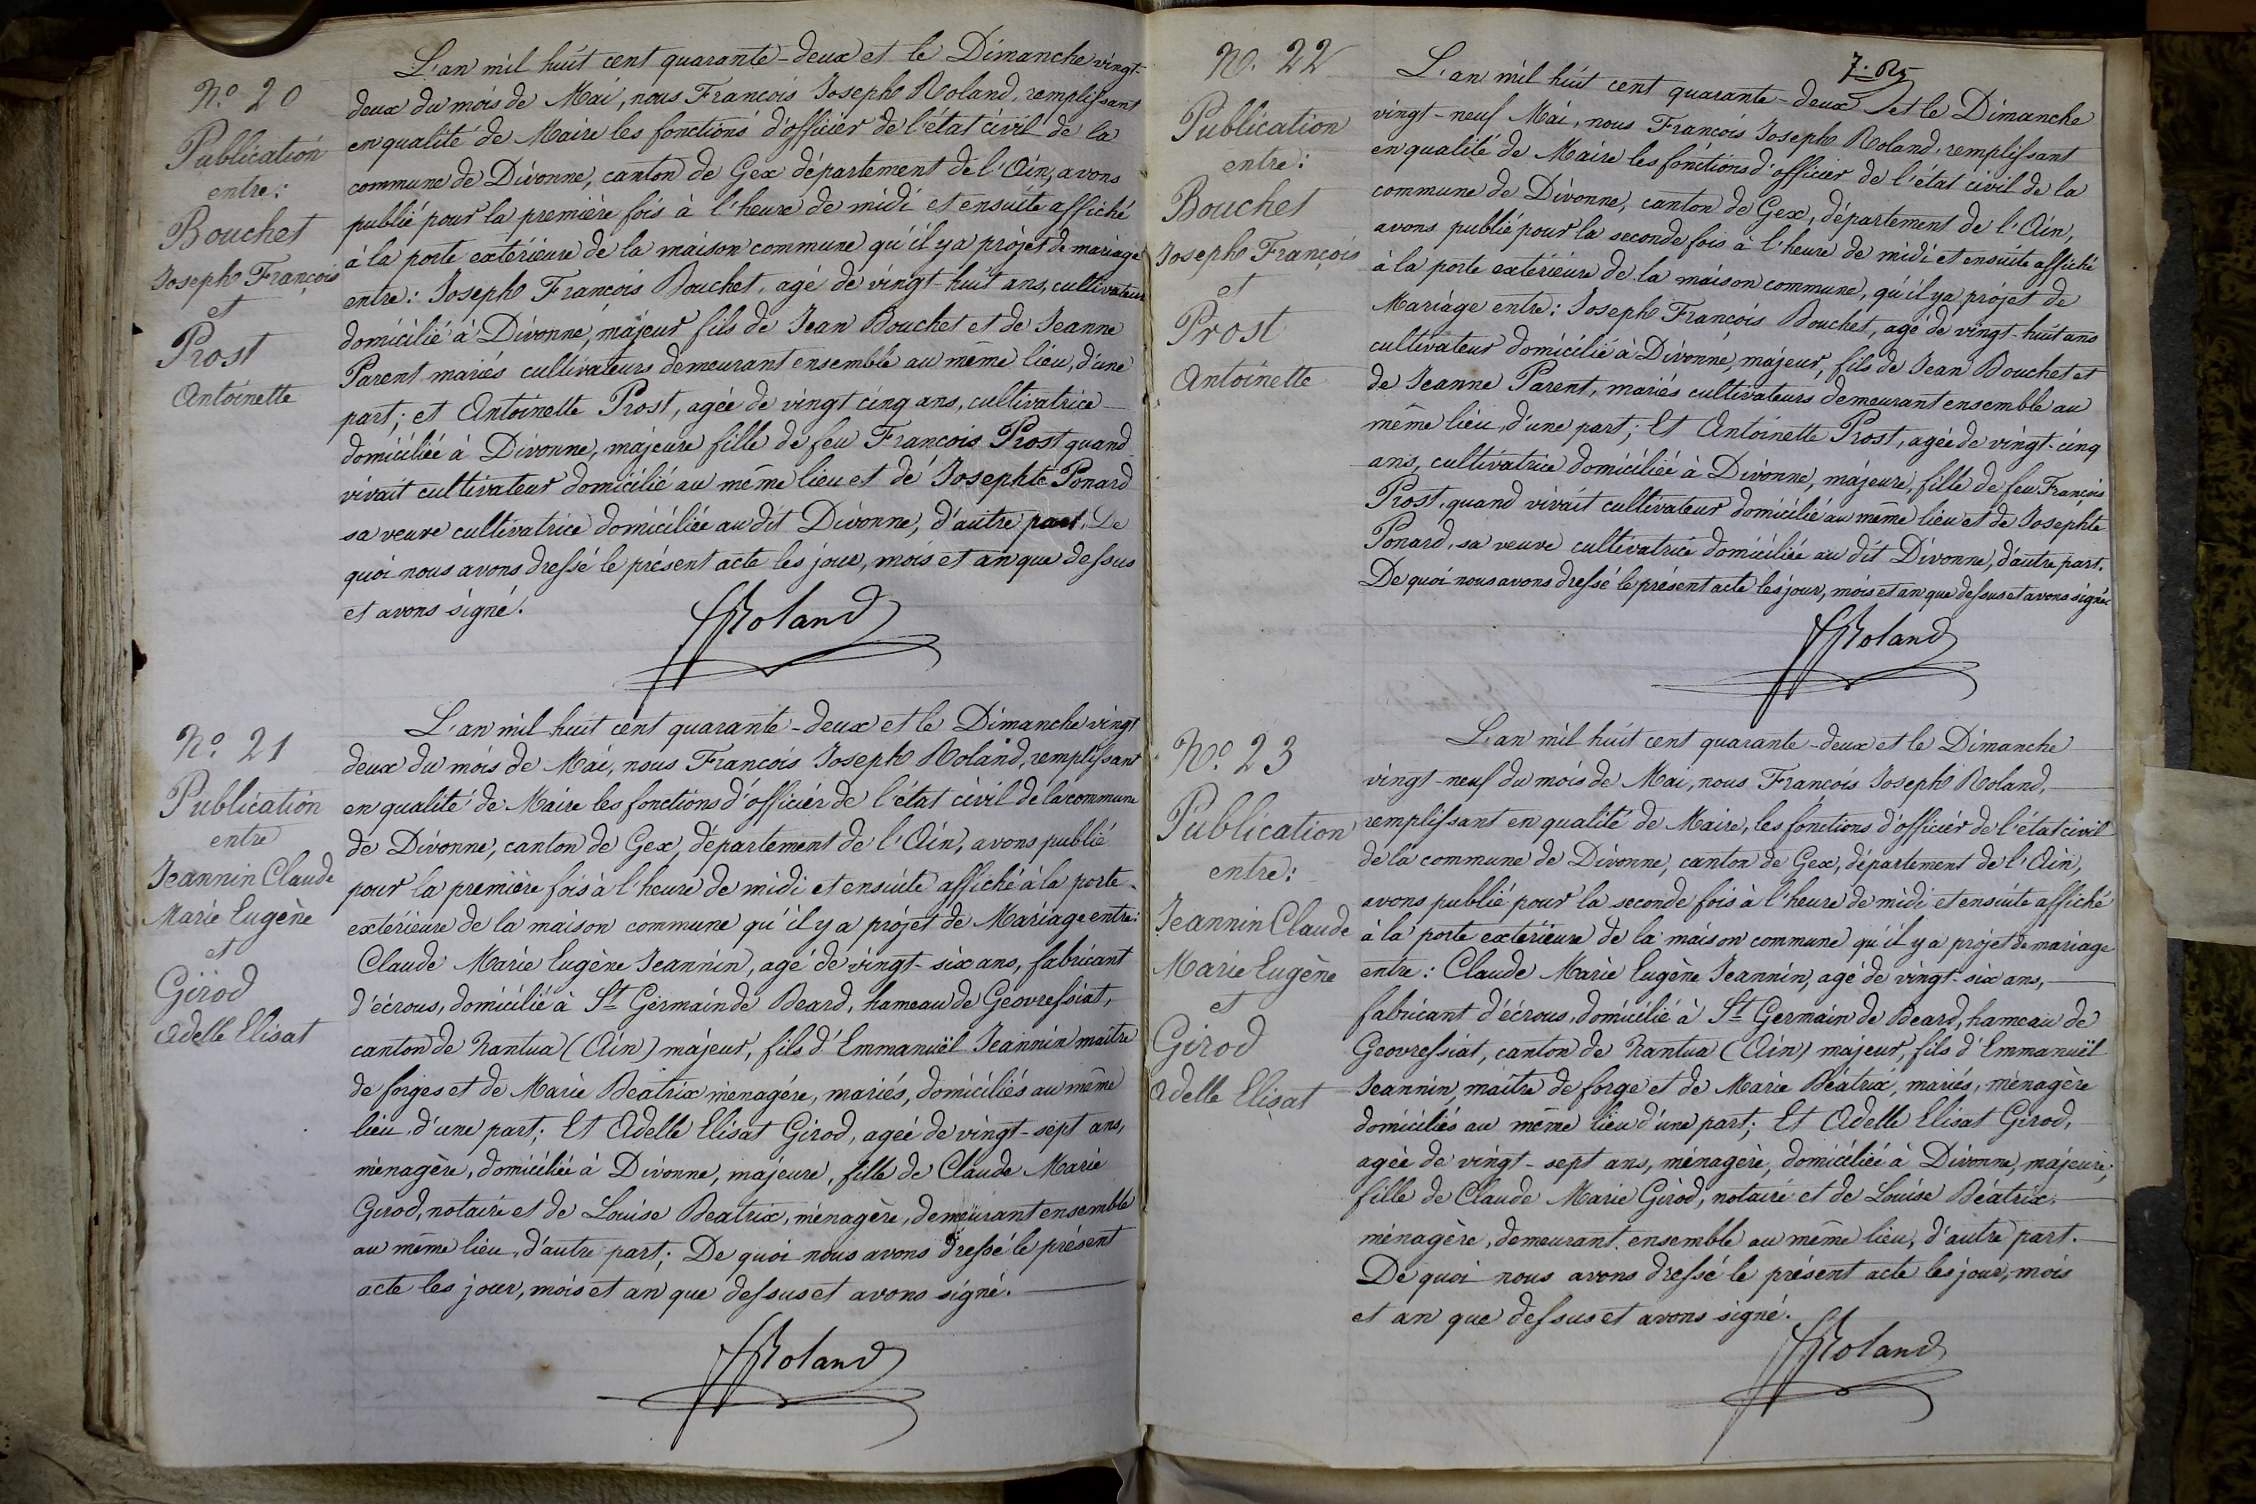 N.o 20
Publication
entre:
Bouchet
Joseph François
et
Prost
Antoinette
L'an mil huit cent quarante-deux et le Dimanche vingt-
deux du mois de Mai, nous François Joseph Roland, remplissant
en qualité de Maire les fonctions d'officier de l'état civil de la
commune de Divonne, canton de Gex département de l'Ain, avons
publié pour la première fois à l'heure de midi et ensuite affiché
à la porte extérieure de la maison commune qu'il y a projet de mariage
entre: Joseph François Bouchet, agé de vingt-huit ans, cultivateur
domicilié à Divonne, majeur fils de Jean Bouchet et de Jeanne
Parent mariés cultivateurs demeurant ensemble au même lieu, d'une
part; et Antoinette Prost, agée de vingt cinq ans, cultivatrice
domiciliée à Divonne, majeure fille de feu François Prost quand
vivait cultivateur domicilié au même lieu et de Josephte Ponard
sa veuve cultivatrice domiciliée au dit Divonne, d'autre part. De
quoi nous avons dressé le présent acte les jour, mois et an que dessus
et avons signé.
FJRoland
N.o 21
Publication
entre
Jeannin Claude
Marie Eugène
et
Girod
Adelle Elisat
L'an mil huit cent quarante-deux et le Dimanche vingt
deux du mois de Mai, nous François Joseph Roland, remplissant
en qualité de Maire les fonctions d'officier de l'état civil de la commune
de Divonne, canton de Gex, département de l'Ain, avons publié
pour la première fois à l'heure de midi et ensuite affiché à la porte
extérieure de la maison commune qu'il y a projet de Mariage entre:
Claude Marie Eugène Jeannin, agé de vingt-six ans, fabricant
d'écrous, domicilié à St Germain de Beard, hameau de Geovressiat,
canton de Nantua (Ain) majeur, fils d'Emmanuël Jeannin maître
de forges et de Marie Beatrix ménagère, mariés, domiciliés au même
lieu, d'une part; Et Adelle Elisat Girod, agée de vingt-sept ans,
ménagère, domiciliée à Divonne, majeure, fille de Claude Marie
Girod, notaire et de Louise Beatrix, ménagère, demeurant ensemble
au même lieu, d'autre part; De quoi nous avons dressé le présent
acte les jour, mois et an que dessus et avons signé.
FJRoland
N.o 22
Publication
entre:
Bouchet
Joseph François
et
Prost
Antoinette
L'an mil huit cent quarante-deux et le Dimanche
vingt-neuf Mai, nous François Joseph Roland, remplissant
en qualité de Maire les fonctions d'officier de l'état civil de la
commune de Divonne, canton de Gex, département de l'Ain,
avons publié pour la seconde fois à l'heure de midi et ensuite affiché
à la porte extérieure de la maison commune, qu'il y a projet de
Mariage entre: Joseph François Bouchet, agé de vingt-huit ans
cultivateur domicilié à Divonne, majeur, fils de Jean Bouchet et
de Jeanne Parent, mariés cultivateurs demeurant ensemble au
même lieu, d'une part; Et Antoinette Prost, agée de vingt-cinq
ans, cultivatrice domiciliée à Divonne, majeure, fille de feu François
Prost, quand vivait cultivateur domicilié au même lieu et de Josephte
Ponard, sa veuve cultivatrice domiciliée au dit Divonne, d'autre part.
De quoi nous avons dressé le présent acte les jour, mois et an que dessus et avons signé
FJRoland
N.o 23
Publication
entre:
Jeannin Claude
Marie Eugène
et
Girod
Adelle Elisat
L'an mil huit cent quarante-deux et le Dimanche
vingt-neuf du mois de Mai, nous François Joseph Roland,
remplissant en qualité de Maire, les fonctions d'officier de l'état civil
de la commune de Divonne, canton de Gex, département de l'Ain,
avons publié pour la seconde fois à l'heure de midi et ensuite affiché
à la porte extérieure de la maison commune qu'il y a projet de mariage
entre: Claude Marie Eugène Jeannin, agé de vingt-six ans,
fabricant d'écrous, domicilié à St Germain de Beard, hameau de
Geovressiat, canton de Nantua (Ain) majeur, fils d'Emmanuël
Jeannin, maître de forge et de Marie Béatrix, mariés, ménagère
domiciliés au même lieu d'une part; Et Adelle Elisat Girod,
agée de vingt-sept ans, ménagère, domiciliée à Divonne, majeure,
fille de Claude Marie Girod, notaire et de Louise Béatrix,
ménagère, demeurant ensemble au même lieu, d'autre part.
De quoi nous avons dressé le présent acte les jour, mois
et an que dessus et avons signé.
FJRoland